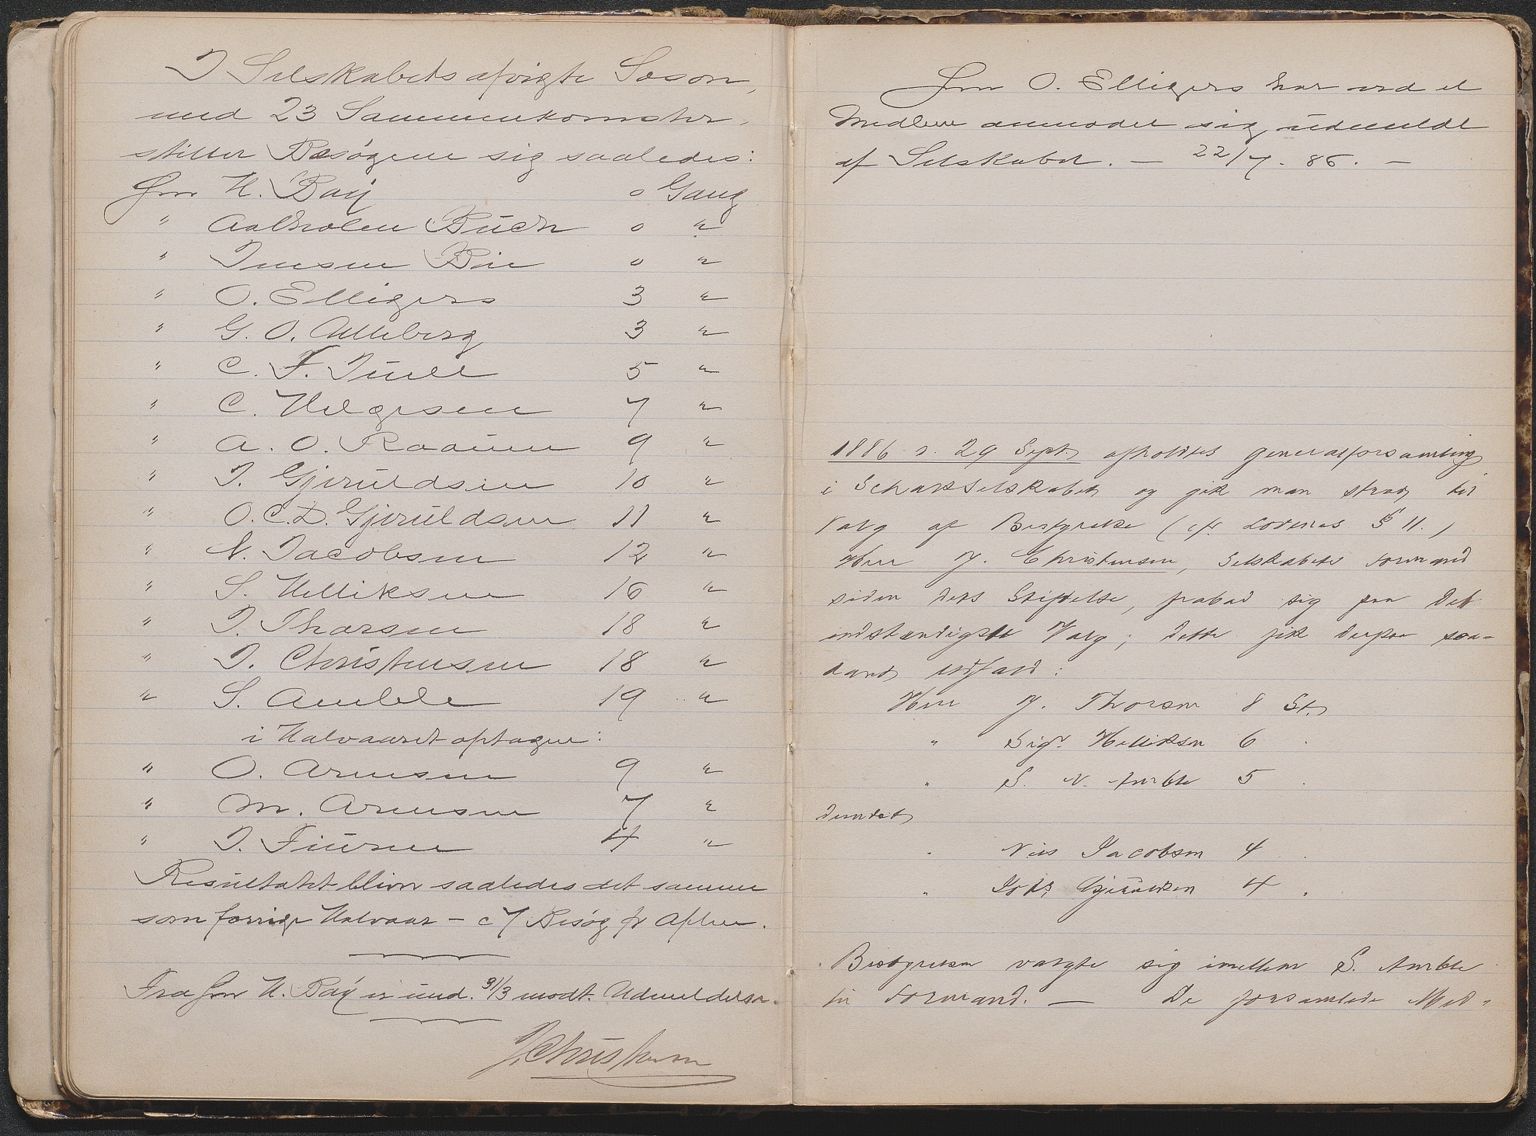 I Selskabets afvigte Sæson,
med 23 Sammenkomster,
stiller Besøgene sig saaledes:
Hrr H. Bay 0 Gang
" Aalholm Buch 0 "
" Jensen Bie 0 "
" O. Elligers 3 "
" G. O. Ulleberg 3 "
" C. F. Juell 5 "
" C. Helgesen 7 "
" A. O. Raaum 9 "
" J. Gjeruldsen 10 "
" O. C. D. Gjeruldsen 11 "
" N. Jacobsen 12 "
" S. Helliksen 16 "
" J. Thorsen 18 "
" J. Christensen 18 "
" S. Amble 19 "
i Halvaaret optagne:
" O. Arnesen 9 "
" M. Arnesen 7 "
" J. Iversen 4 "
Resultatet bliver saaledes det samme
som forrige Halvaar – c 7 Besøg pr Aften.
Fra Hrr H. Bay er und. 31/3 modt. Udmeldelse.
J. Christensen
Hrr O. Elligers har ved et
Medlem anmodet sig udmeldt
af Selskabet. — 22/7. 86. —
1886 d. 29 Sept. afholdtes generalforsamling
i Schakselskabet og gik man strax til
Valg af Bestyrelse (cfr. Lovenes § 11.)
Herr J. Christensen, Selskabets Formand
siden dets Stiftelse, frabad sig paa det
indstændigste Valg; dette fik derpaa saa-
dant Udfald:
Herr J. Thorsen 8 St.
" Sigv. Helliksen 6 "
" S. N. Amble 5 "
dernæst
" Nils Jacobsen 4 "
" Joh. Gjeruldsen 4 "
Bestyrelsen valgte sig imellem S. Amble
til Formand. — De forsamlede Med-